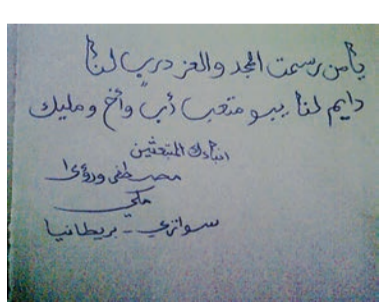 يا من رسمت المجد والعز درب لنا
دايم لنا يبو متعب أبٌ وأخ ومليك
ابناءك المبتعثين
مصطفى ورؤى
مكي
سوانزي - بريطانيا